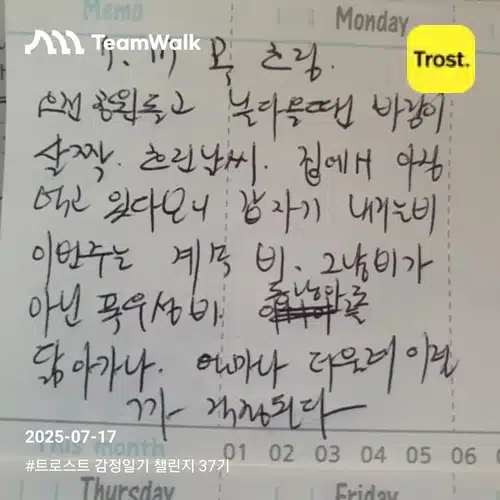 Memo
Monday
TeamWalk
Trost.
7. 17 목 흐림.
오전 병원들고 날때엔 바람이
살짝. 흐린날씨. 집에서 아침
먹고 있다보니 갑자기 내리는비
이번주는 계속 비. 그냥비가
아닌 폭우성 비. 동남아를
닮아가나. 얼마나 더우려 이럴
까 걱정된다—
2025-07-17
This month
01 02 03 04 05 06
#트로스트 감정일기 챌린지 37기
Thursday
Friday